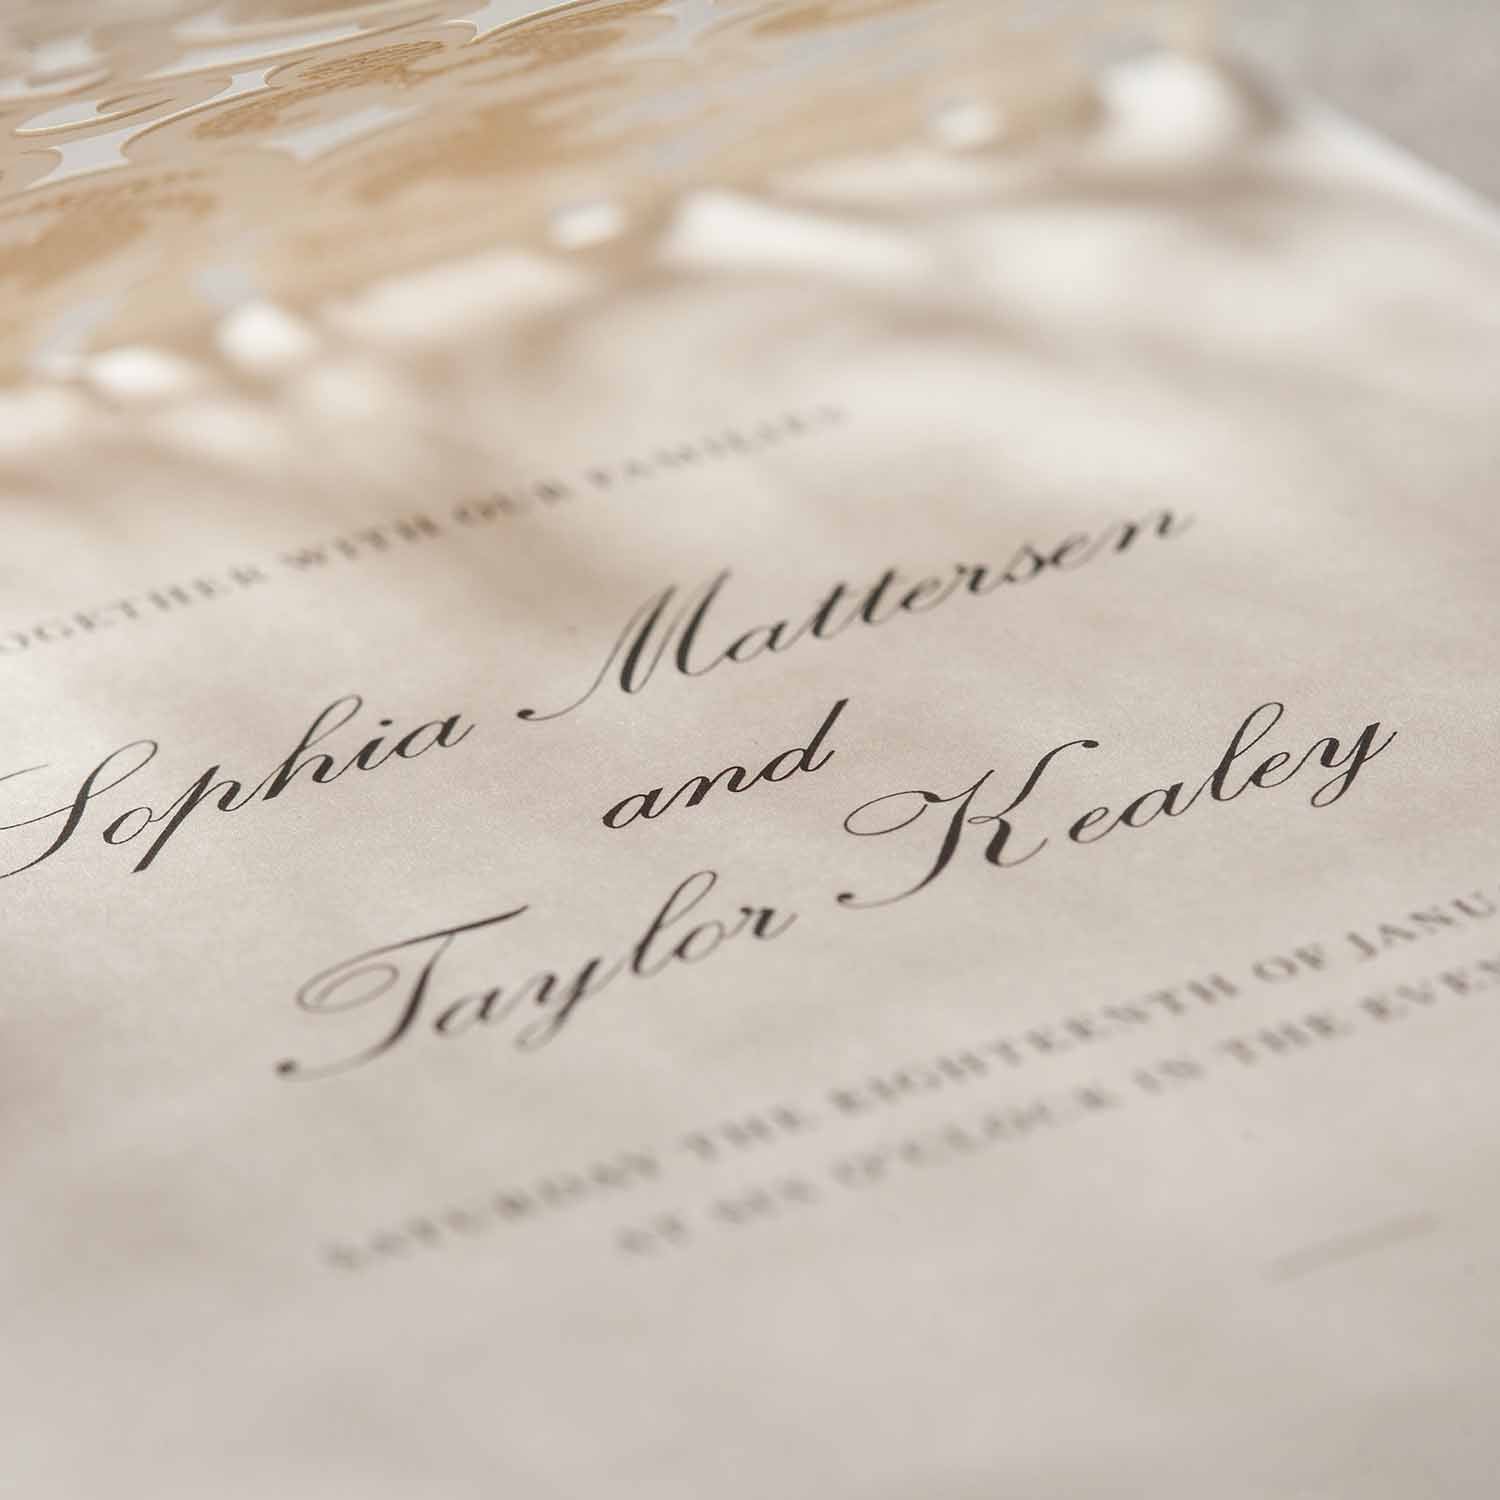 OGETHER WITH OUR FAMILIES
Sophia Mattersen
and
Taylor Kealey
SATURDAY THE EIGHTEENTH OF JANU
AT SIX O'CLOCK IN THE EVEN